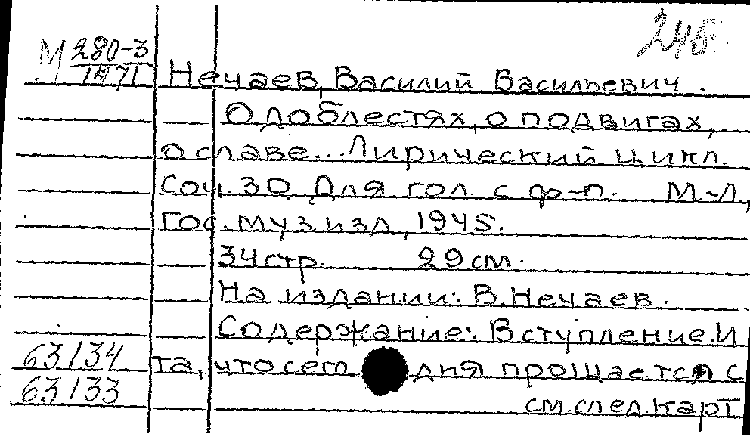 245
М 280-3
1971
Нечаев, Василий Васильевич.
О доблестях, о подвигах,
о славе... Лирический цикл.
Соч. 30. Для гол. с ф-п. М-Л,
Гос. муз. изд, 1945.
34 стр. 29 см.
На издании: В. Нечаев.
Содержание: Вступление. И
63134 та, что сегодня прощается с
63133
см след. карт